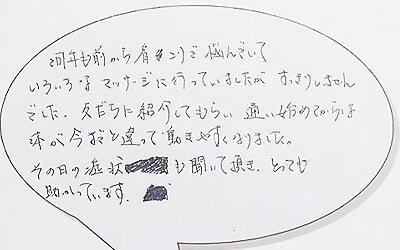 何年も前から肩こりで悩んでいて
いろいろなマッサージに行っていましたがすっきりしません
でした。友だちに紹介してもらい通い始めてからは
体が今までと違って動きやすくなりました。
その日の症状も聞いて頂き、とっても
助かっています。